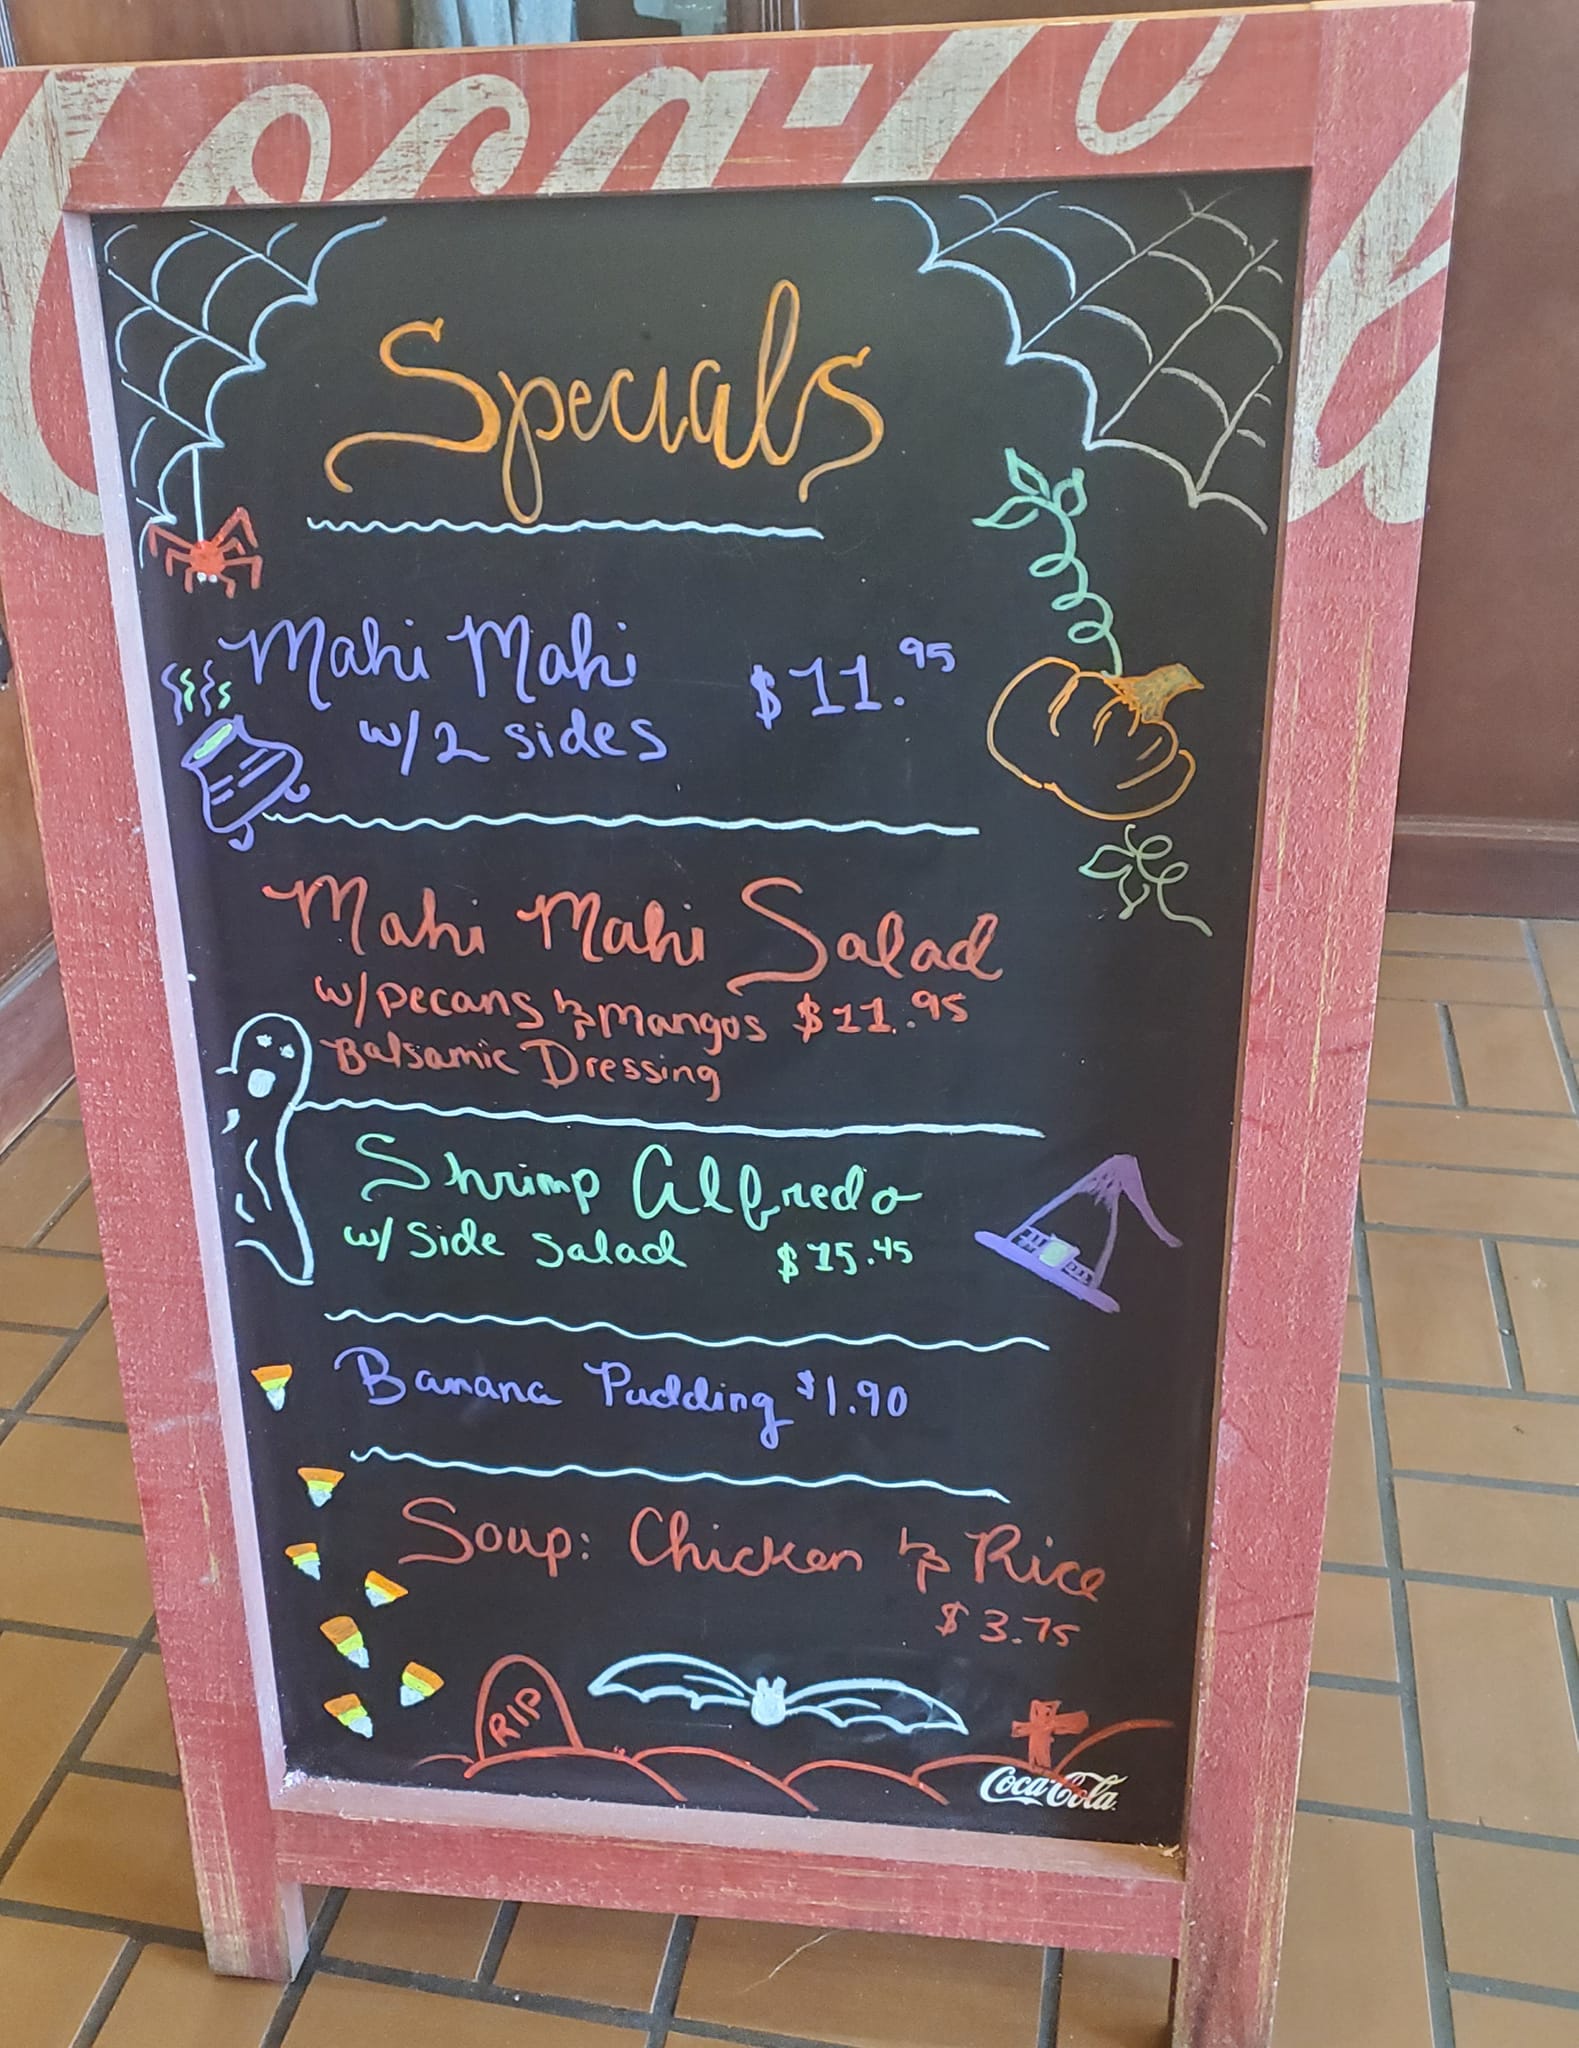 Coca-Co
Specials
Mahi Mahi $11.95
w/2 sides
Mahi Mahi Salad
w/pecans & Mangos $11.95
Balsamic Dressing
Shrimp Alfredo
w/ Side Salad $15.45
Banana Pudding $1.90
Soup: Chicken & Rice
$3.75
RIP
Coca-Cola